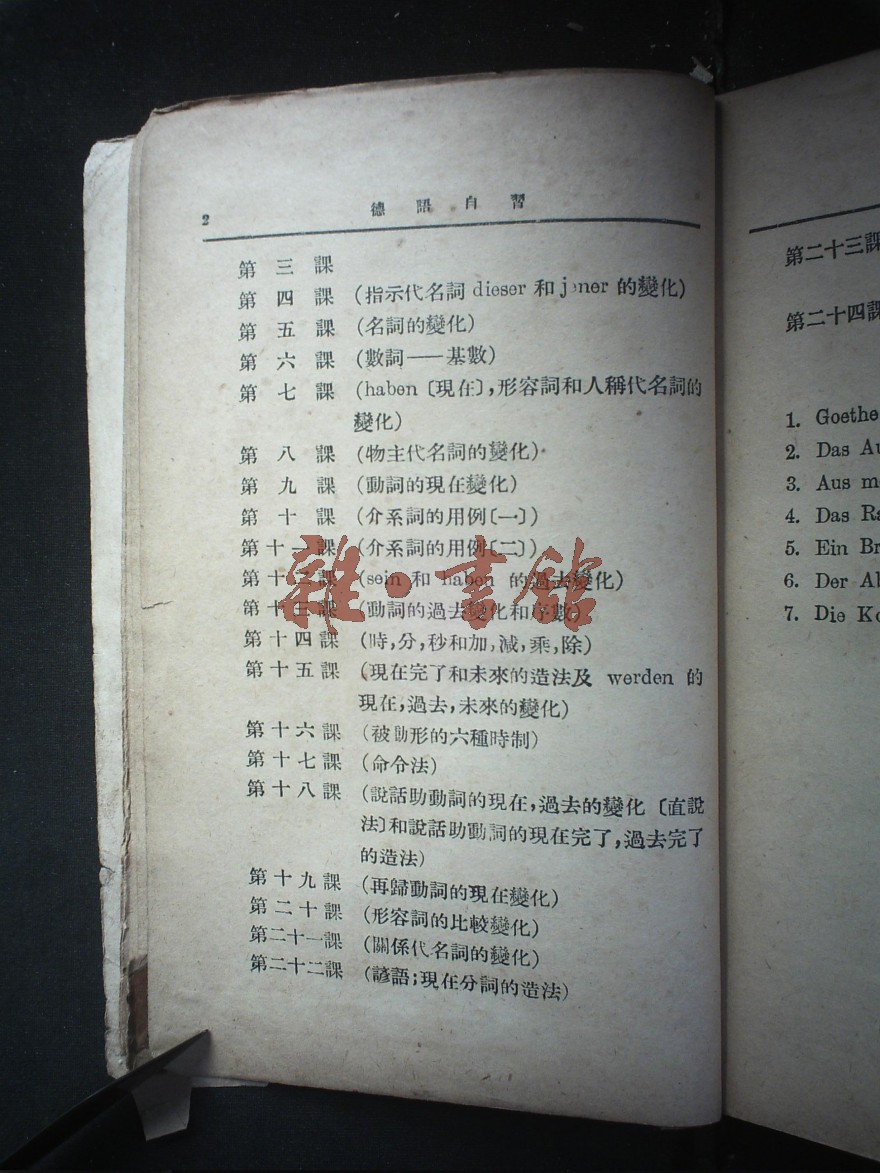 2 德語自習
第三課
第四課 (指示代名詞 dieser 和 jener 的變化)
第五課 (名詞的變化)
第六課 (數詞——基數)
第七課 (haben〔現在〕,形容詞和人稱代名詞的
變化)
第八課 (物主代名詞的變化)
第九課 (動詞的現在變化)
第十課 (介系詞的用例〔一〕)
第十一課 (介系詞的用例〔二〕)
第十二課 (sein 和 haben 的過去變化)
第十三課 (動詞的過去變化和序數)
第十四課 (時,分,秒和加,減,乘,除)
第十五課 (現在完了和未來的造法及 werden 的
現在,過去,未來的變化)
第十六課 (被動形的六種時制)
第十七課 (命令法)
第十八課 (說話助動詞的現在,過去的變化〔直說
法〕和說話助動詞的現在完了,過去完了
的造法)
第十九課 (再歸動詞的現在變化)
第二十課 (形容詞的比較變化)
第二十一課 (關係代名詞的變化)
第二十二課 (諺語;現在分詞的造法)
雜·書館
第二十三課
第二十四課
1. Goethe
2. Das Au
3. Aus m
4. Das Ra
5. Ein Br
6. Der Al
7. Die Ko